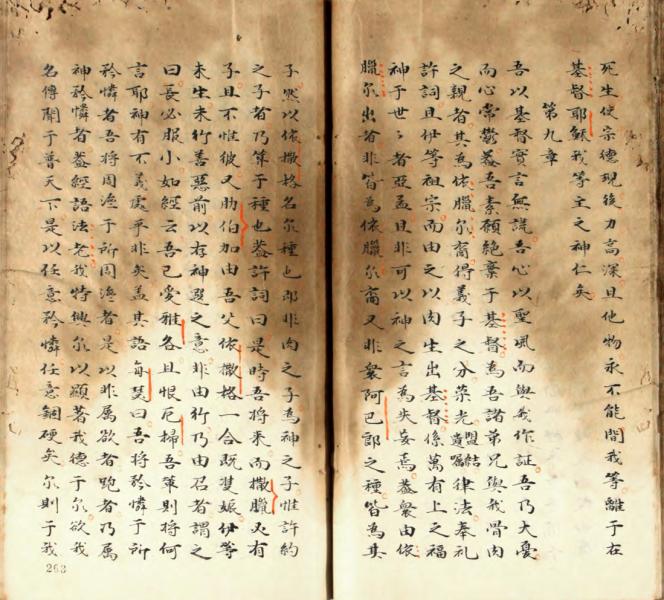 死生使宗德現後力高深且他物永不能間我等離于在
基督耶穌我等主之神仁矣
第九章
吾以基督實言無謊吾心以聖風而與我作証吾乃大憂
而心常鬱蓋吾素願絕棄于基督為吾諸弟兄與我骨肉
之親者其為依臘尔裔得義子之分榮光盟結遺囑律法奉礼
許詞且伊等祖宗而由之以肉生出基督係萬有上之福
神于世世者亞孟且非可以神之言為失妄焉蓋衆由依
臘尔出者非皆為依臘尔裔又非衆阿巴郎之種皆為其
子然以依撒格名尔種也即非肉之子為神之子惟許約
之子者乃算于種也蓋許詞曰是時吾將来而撒臘必有
子且不惟彼又肋伯加由吾父依撒格一合既雙娠伊等
未生未行善惡前以存神選之意非由行乃由召者謂之
曰長必服小如經云吾已愛雅各且恨厄掃吾等則將何
言耶神有不義處乎非矣盖其語每瑟曰吾將矜憐于所
矜憐者吾將周濟于所周濟者是以非属欲者跑者乃属
神矜憐者蓋經語法老我特興尔以顯著我德于尔欲我
名傳聞于普天下是以任意矜憐任意錮硬矣尔則于我
263